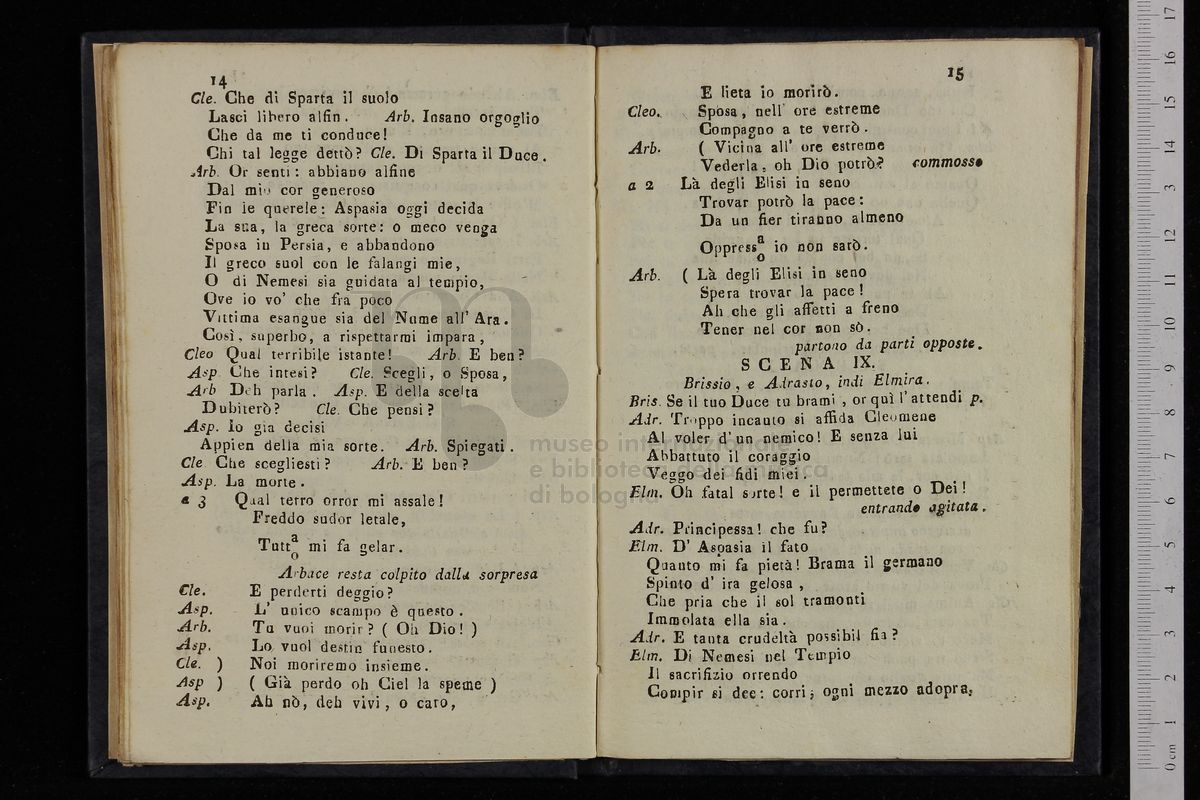 14
Cle. Che di Sparta il suolo
Lasci libero alfin. Arb. Insano orgoglio
Che da me ti conduce!
Chi tal legge dettò? Cle. Di Sparta il Duce.
Arb. Or senti: abbiano alfine
Dal mio cor generoso
Fin le querele: Aspasia oggi decida
La sua, la greca sorte: o meco venga
Sposa in Persia, e abbandono
Il greco suol con le falangi mie,
O di Nemesi sia guidata al tempio,
Ove io vo' che fra poco
Vittima esangue sia del Nume all' Ara.
Così, superbo, a rispettarmi impara,
Cleo Qual terribile istante! Arb. E ben?
Asp. Che intesi? Cle. Scegli, o Sposa,
Arb Deh parla. Asp. E della scelta
Dubiterò? Cle. Che pensi?
Asp. Io gia decisi
Appien della mia sorte. Arb. Spiegati.
Cle Che scegliesti? Arb. E ben?
Asp. La morte.
a 3 Qual terro orror mi assale!
Freddo sudor letale,
Tutt a/o mi fa gelar.
Arbace resta colpito dalla sorpresa
Cle. E perderti deggio?
Asp. L' unico scampo è questo.
Arb. Tu vuoi morir? ( Oh Dio! )
Asp. Lo vuol destin funesto.
Cle. ) Noi moriremo insieme.
Asp ) ( Già perdo oh Ciel la speme )
Asp. Ah nò, deh vivi, o caro,
15
E lieta io morirò.
Cleo. Sposa, nell' ore estreme
Compagno a te verrò.
Arb. ( Vicina all' ore estreme
Vederla, oh Dio potrò? commosso
a 2 Là degli Elisi in seno
Trovar potrò la pace:
Da un fier tiranno almeno
Oppress a/o io non sarò.
Arb. ( Là degli Elisi in seno
Spera trovar la pace!
Ah che gli affetti a freno
Tener nel cor non sò.
partono da parti opposte.
SCENA IX.
Brissio, e Adrasto, indi Elmira.
Bris. Se il tuo Duce tu brami, or quì l'attendi p.
Adr. Troppo incauto si affida Cleomene
Al voler d'un nemico! E senza lui
Abbattuto il coraggio
Veggo dei fidi miei.
Elm. Oh fatal sorte! e il permettete o Dei!
entrando agitata.
Adr. Principessa! che fu?
Elm. D' Aspasia il fato
Quanto mi fa pietà! Brama il germano
Spinto d' ira gelosa,
Che pria che il sol tramonti
Immolata ella sia.
Adr. E tanta crudeltà possibil fia?
Elm. Di Nemesi nel Tempio
Il sacrifizio orrendo
Compir si dee: corri; ogni mezzo adopra,
museo internazionale
e biblioteca della musica
di bologna
0 cm 1 2 3 4 5 6 7 8 9 10 11 12 13 14 15 16 17